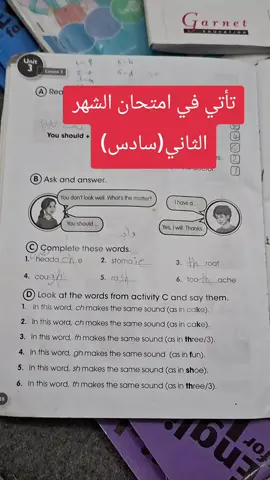 Garnet
EDUCATION
Unit
3
Lesson 3
A Rea
تأتي في امتحان الشهر
الثاني(سادس)
You should +
B Ask and answer.
You don't look well. What's the matter?
I have a
You should ...
Yes, I will. Thanks.
C Complete these words.
1. heada che 2. stoma 3. th roat
4. cough 5. 6. tooth ache
D Look at the words from activity C and say them.
1. In this word, ch makes the same sound (as in cake).
2. In this word, ch makes the same sound (as in cake).
3. In this word, th makes the same sound (as in three/3).
4. In this word, gh makes the same sound (as in fun).
5. In this word, sh makes the same sound (as in shoe).
6. In this word, th makes the same sound (as in three/3).